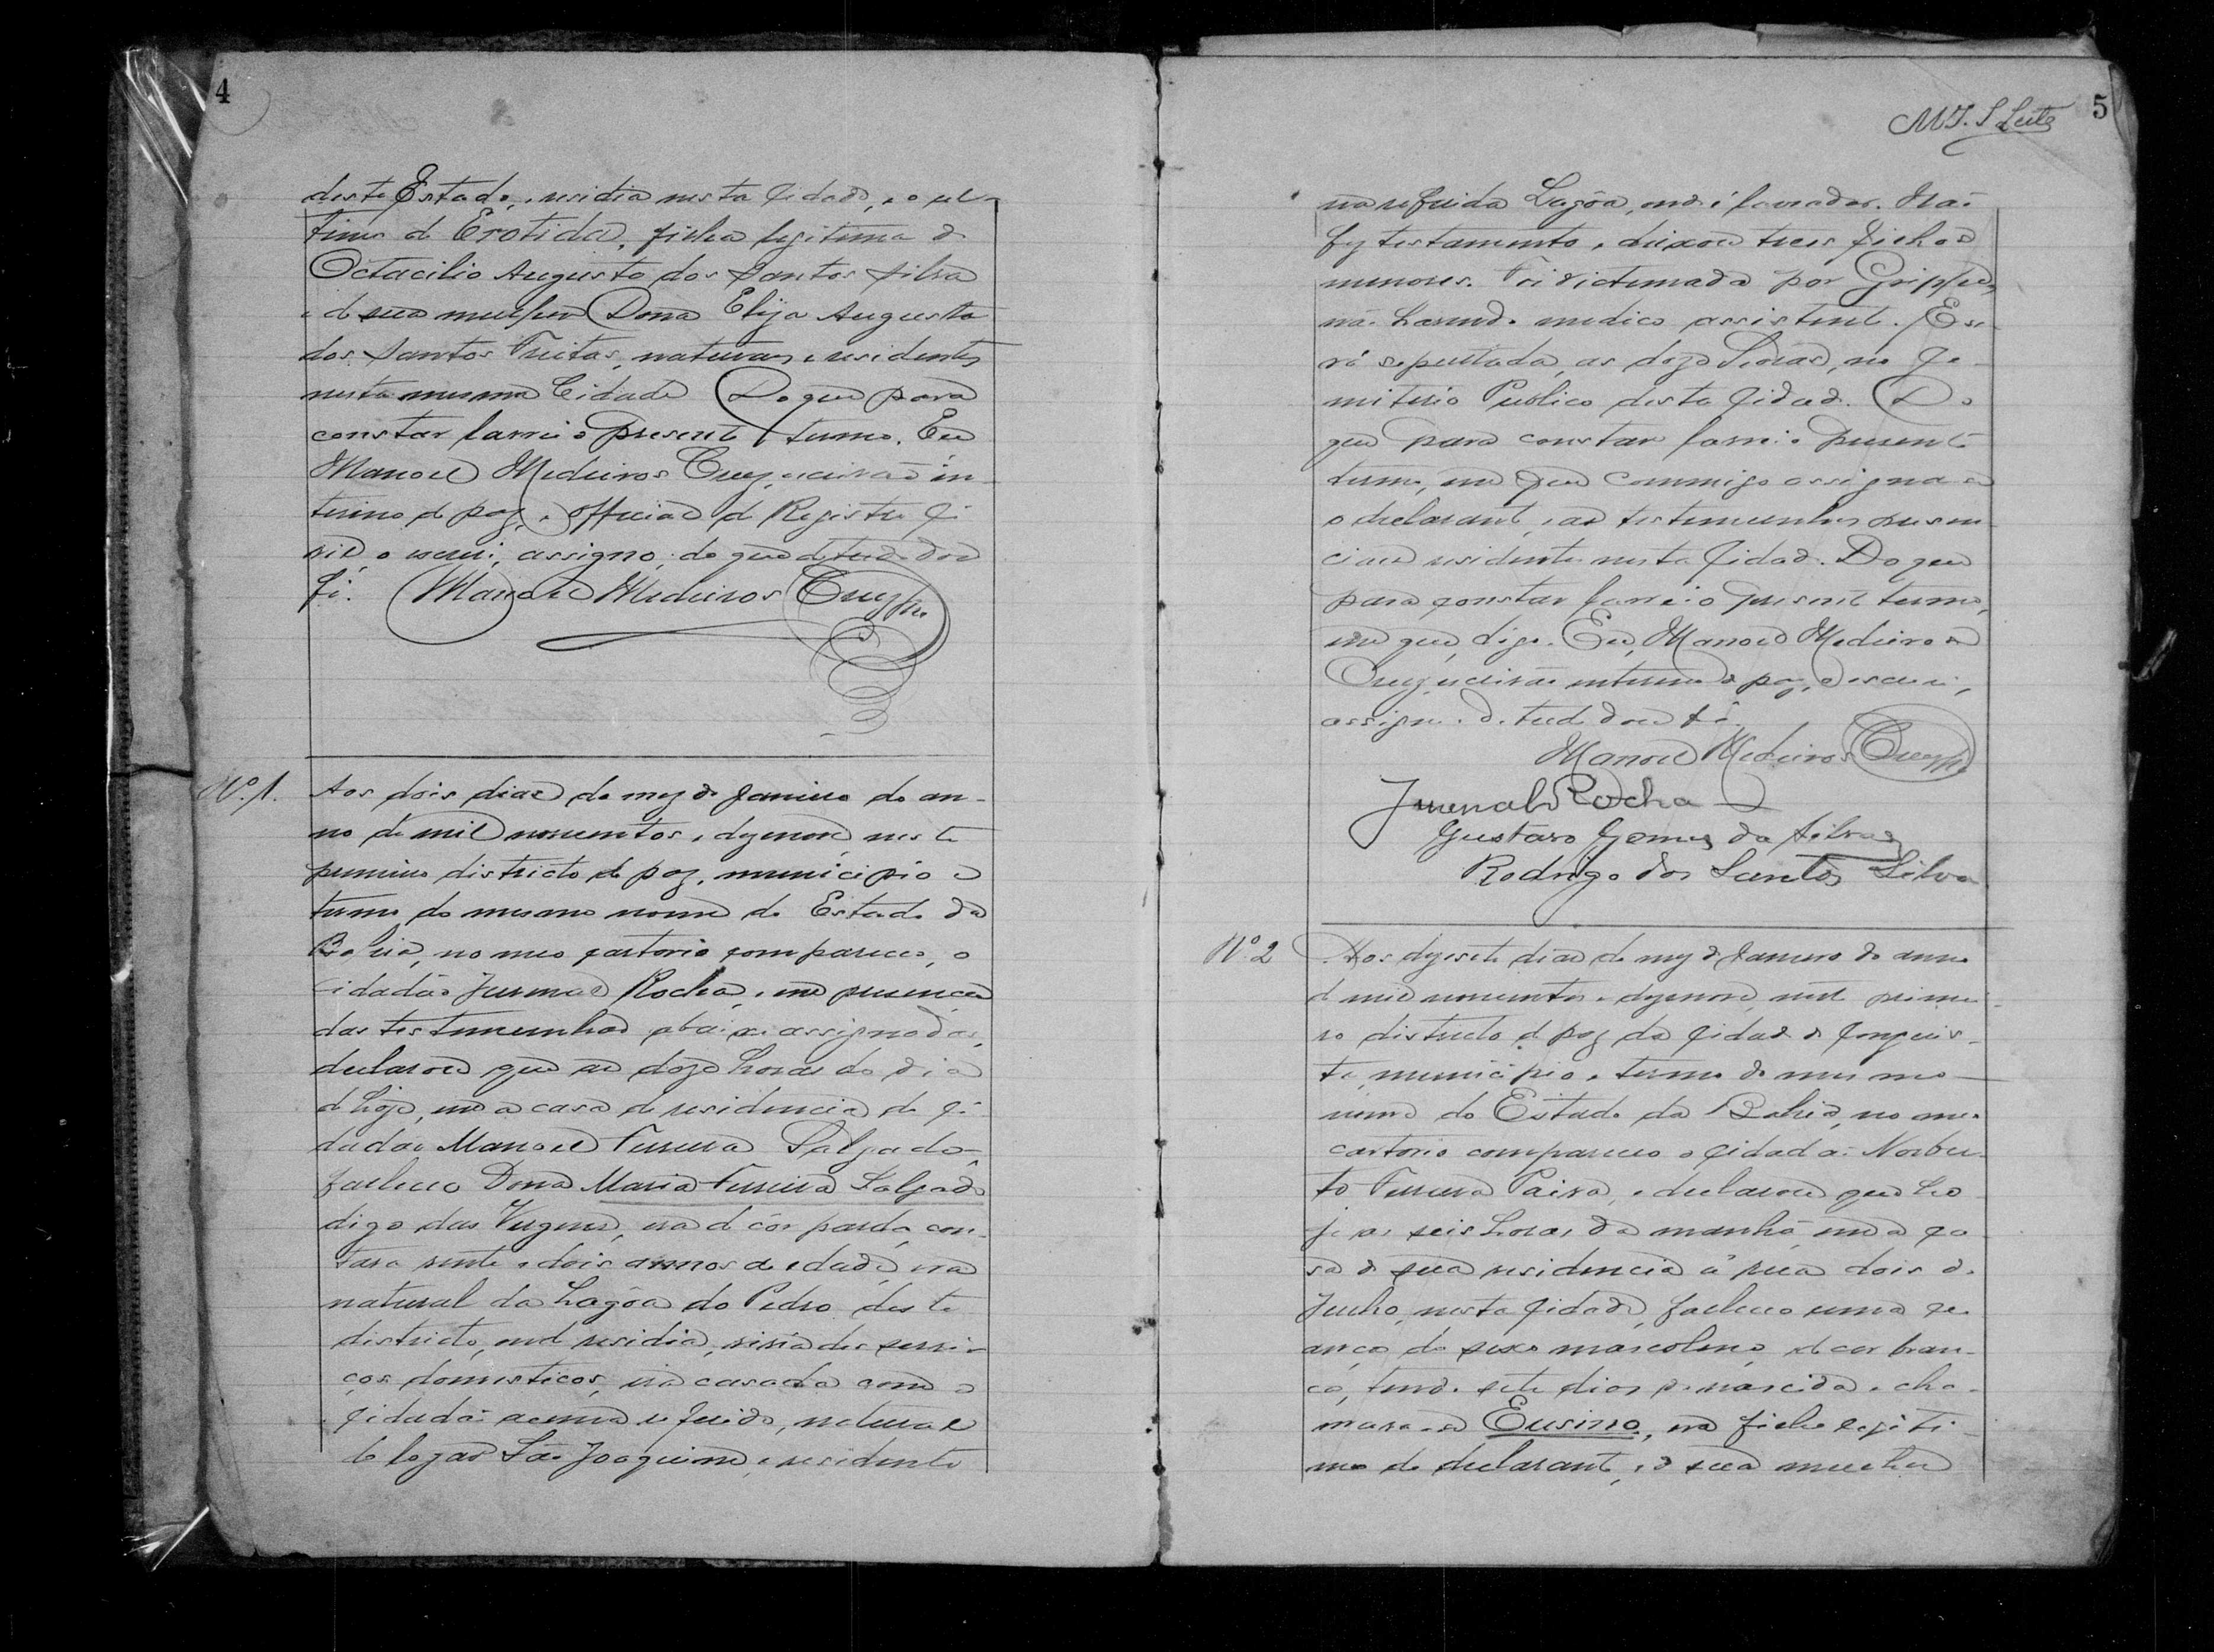 4
deste Estado, e residia nesta Cidade, e o ul-
timo de Erotida, filha legitima de
Octacilio Augusto dos Santos Silva
e de sua mulher Dona Elija Augusta
dos Santos Freitas, naturaes e residentes
nesta mesma Cidade Do que para
constar lavrei o presente termo. Eu
Manoel Medeiros Cruz, escrivão in-
terino de paz, e official do Registro Ci
vil, o escrevi, assigno, do que de tudo dou
fé. Manoel Medeiros Cruz
Nº. 1. Aos dois dias do mez de Janeiro do an-
no de mil novecentos e dezenove, neste
primeiro districto de paz, municipio e
termo do mesmo nome do Estado da
Bahia, no meu cartorio compareceo, o
Cidadão Juvenal Rocha, e em presença
das testemunhas abaixo assignadas,
declarou que as doze horas do dia
de hoje, em a casa de residencia do ci-
dadão Manoel Ferreira Salgado,
falleceo Dona Maria Ferreira Salgado
digo das Virgens, era de côr parda, con-
tava vinte e dois annos de edade, era
natural da Lagôa do Pedro deste
districto, onde residia, vivia dos servi-
ços domesticos, era casada com o
cidadão acima referido, natural
do logar São Joaquim e residente
M J. S Leite 5
na referida Lagôa, onde é lavrador. Não
fez testamento e deixou tres filhos
menores. Foi victimada por Grippe,
não havendo medico assistente. Se-
rá sepultada, as doze horas, no Ce-
miterio Publico desta Cidade. Do
que para constar lavrei o presente
termo, em que commigo assignam
o declarante, e as testemunhas presen
ciaes residentes nesta Cidade. Do que
para constar lavrei o presente termo,
em que, digo. Eu, Manoel Medeiros
Cruz, escrivão interino de paz, o escrevi,
assigno. De tudo dou fé.
Manoel Medeiros Cruz
Juvenal Rocha
Gustavo Gomes da Silva
Rodrigo dos Santos Silva
Nº 2 Aos dezesete dias do mez de Janeiro do anno
de mil novecentos e dezenove, neste primei-
ro districto de paz da Cidade de Conquis-
ta, municipio e termo do mesmo
nome do Estado da Bahia, no meu
cartorio compareceo o Cidadão Norber-
to Ferreira Paiva, e declarou que ho
je as seis horas da manhã, em a ca
sa de sua residencia á rua dois de
Julho, nesta Cidade, falleceo uma cre
ança do sexo mascolino, de cor bran-
ca, tendo sete dias de nascida e cha-
mava-se Eusino, era filho legiti-
mo do declarante, e de sua mulher